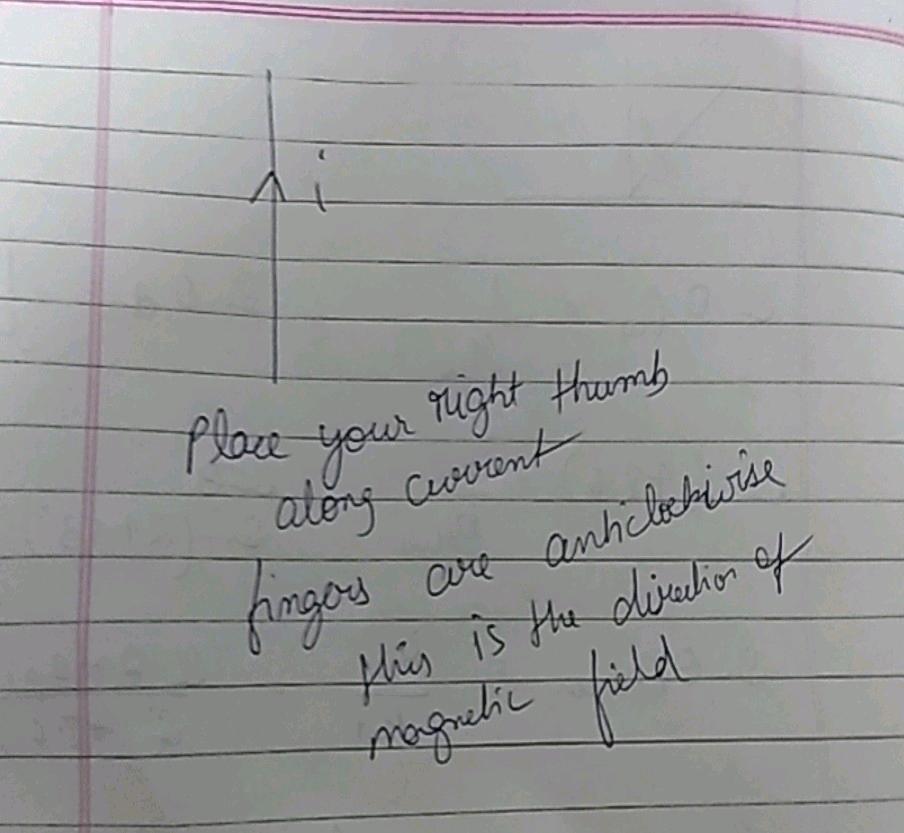 i
Place your right thumb
along current
fingers are anticlockwise
this is the direction of
magnetic field